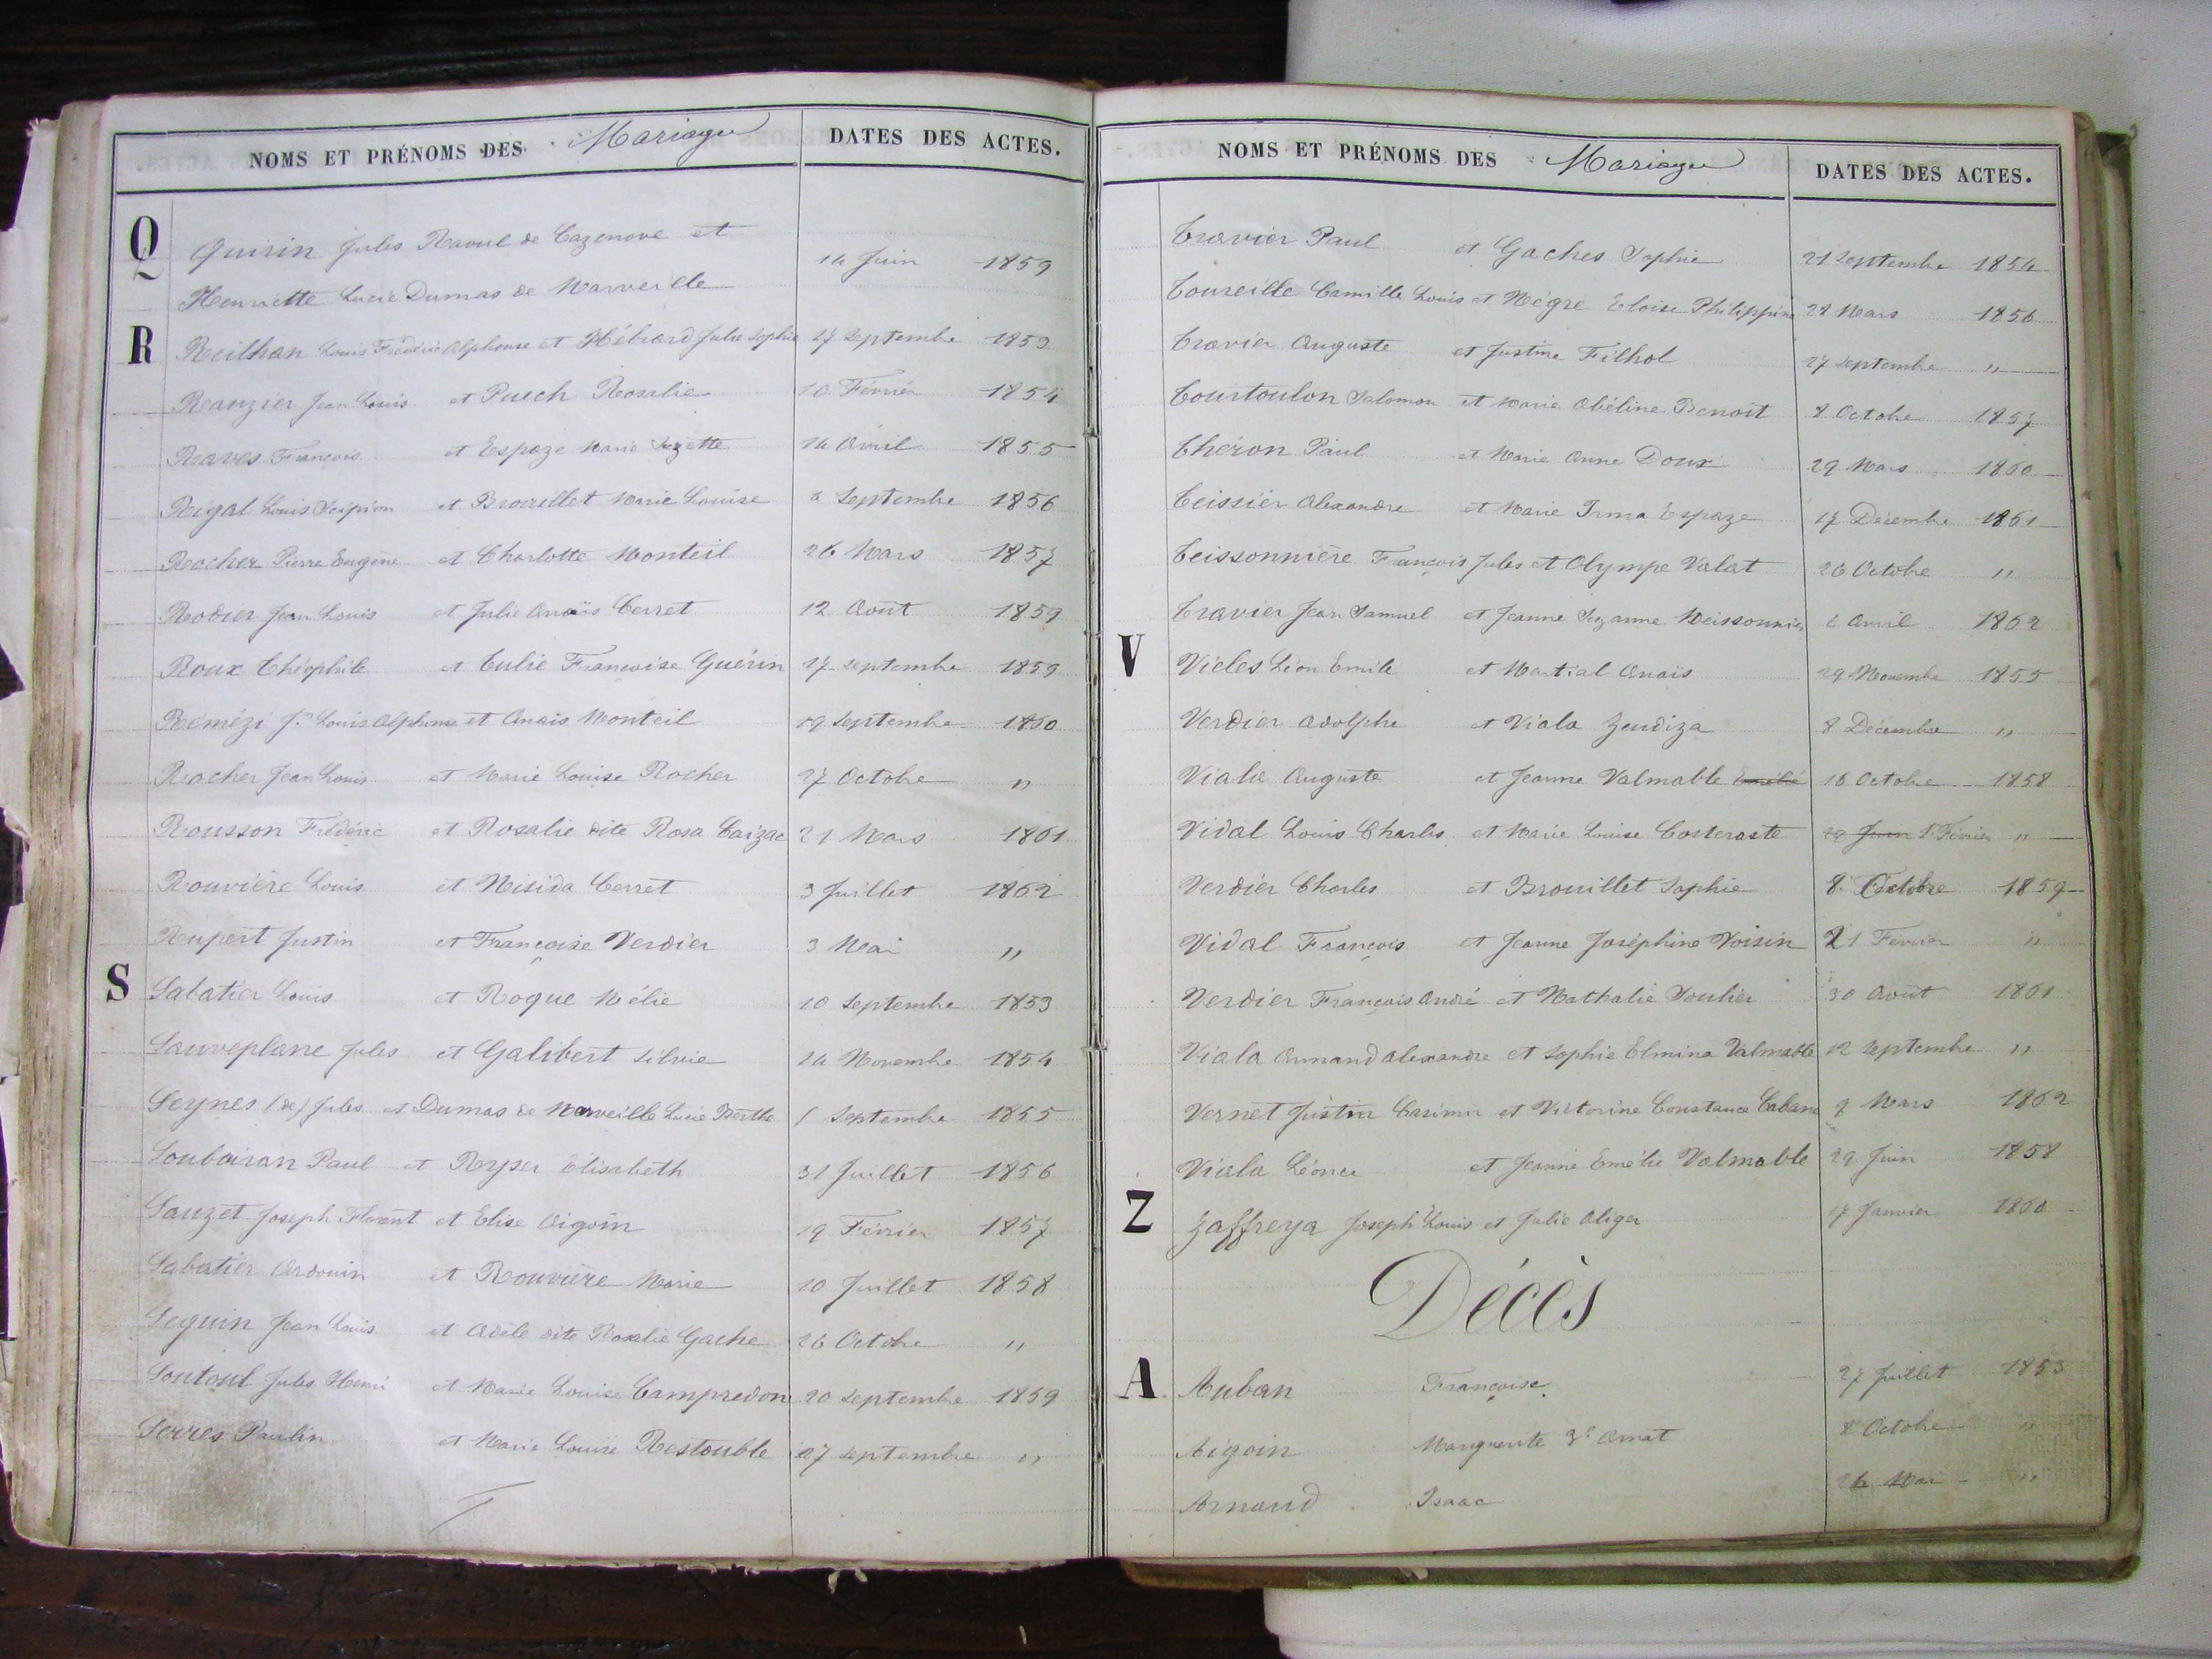 NOMS ET PRÉNOMS DES Mariages DATES DES ACTES.
Q Quirin Jules Raoul de Cazenove et
Henriette Lucie Dumas de Marveille 14 Juin 1859
R Reilhan Louis Frédéric Alphonse et Hébrard Julie Sophie 27 Septembre 1853
Reanzier Jean Louis et Puech Rosalie 10 Février 1854
Reaves François et Espaze Marie Suzette 24 Avril 1855
Régal Louis Scipion et Brouillet Marie Louise 4 Septembre 1856
Rocher Pierre Eugène et Charlotte Monteil 26 Mars 1857
Rodier Jean Louis et Julie Anaïs Cerret 12 Août 1859
Roux Théophile et Tulie Françoise Guérin 17 Septembre 1859
Remézi Jn Louis Alphonse et Anaïs Monteil 19 Septembre 1860
Rocher Jean Louis et Marie Louise Rocher 27 Octobre "
Rousson Frédéric et Rosalie dite Rosa Caizac 21 Mars 1861
Rouvière Louis et Nisida Cerret 3 Juillet 1862
Rupert Justin et Françoise Verdier 3 Mai "
S Sabatier Louis et Roque Mélie 10 Septembre 1853
Sauveplane Jules et Galibert Silvie 24 Novembre 1854
Seynes (de) Jules et Dumas de Marveille Lucie Berthe 1 Septembre 1855
Soubairan Paul et Reyser Elisabeth 31 Juillet 1856
Sauzet Joseph Florent et Elise Aigoin 19 Février 1857
Sabatier Ardouin et Rouvière Marie 10 Juillet 1858
Seguin Jean Louis et Adèle dite Rosalie Gache 26 Octobre "
Soutoul Jules Henri et Marie Louise Campredon 20 Septembre 1859
Serres Paulin et Marie Louise Restouble 27 Septembre "
T
NOMS ET PRÉNOMS DES Mariages DATES DES ACTES.
Travier Paul et Gaches Sophie 21 Septembre 1854
Toureille Camille Louis et Nègre Eloïse Philippine 28 Mars 1856
Travier Auguste et Justine Filhol 27 Septembre "
Tourtoulon Salomon et Marie Abéline Benoit 8 Octobre 1857
Théron Paul et Marie Anne Doux 29 Mars 1860
Teissier Alexandre et Marie Irma Espaze 17 Décembre 1861
Teissonnière François Jules et Olympe Valat 26 Octobre "
Travier Jean Samuel et Jeanne Suzanne Meissonnier 6 Avril 1862
V Vieles Léon Emile et Martial Anaïs 29 Novembre 1855
Verdier Adolphe et Viala Zendiza 8 Décembre "
Viala Auguste et Jeanne Valmalle Emélie 16 Octobre 1858
Vidal Louis Charles et Marie Louise Costeraste 29 Juin 1 Février "
Verdier Charles et Brouillet Sophie 8 Octobre 1859
Vidal François et Jeanne Joséphine Voisin 21 Février "
Verdier François André et Nathalie Soulier 30 Août 1861
Viala Armand Alexandre et Sophie Elmina Valmalle 12 Septembre "
Vernet Justin Casimir et Victorine Constance Cabane 9 Mars 1862
Viala Léonce et Jeanne Emélie Valmalle 29 Juin 1858
Z Zaffreya Joseph Louis et Julie Aliger 17 Janvier 1860
Décès
A Auban Françoise 27 Juillet 1853
Aigoin Marguerite Amat 8 Octobre "
Arnaud Isaac 26 Mai "